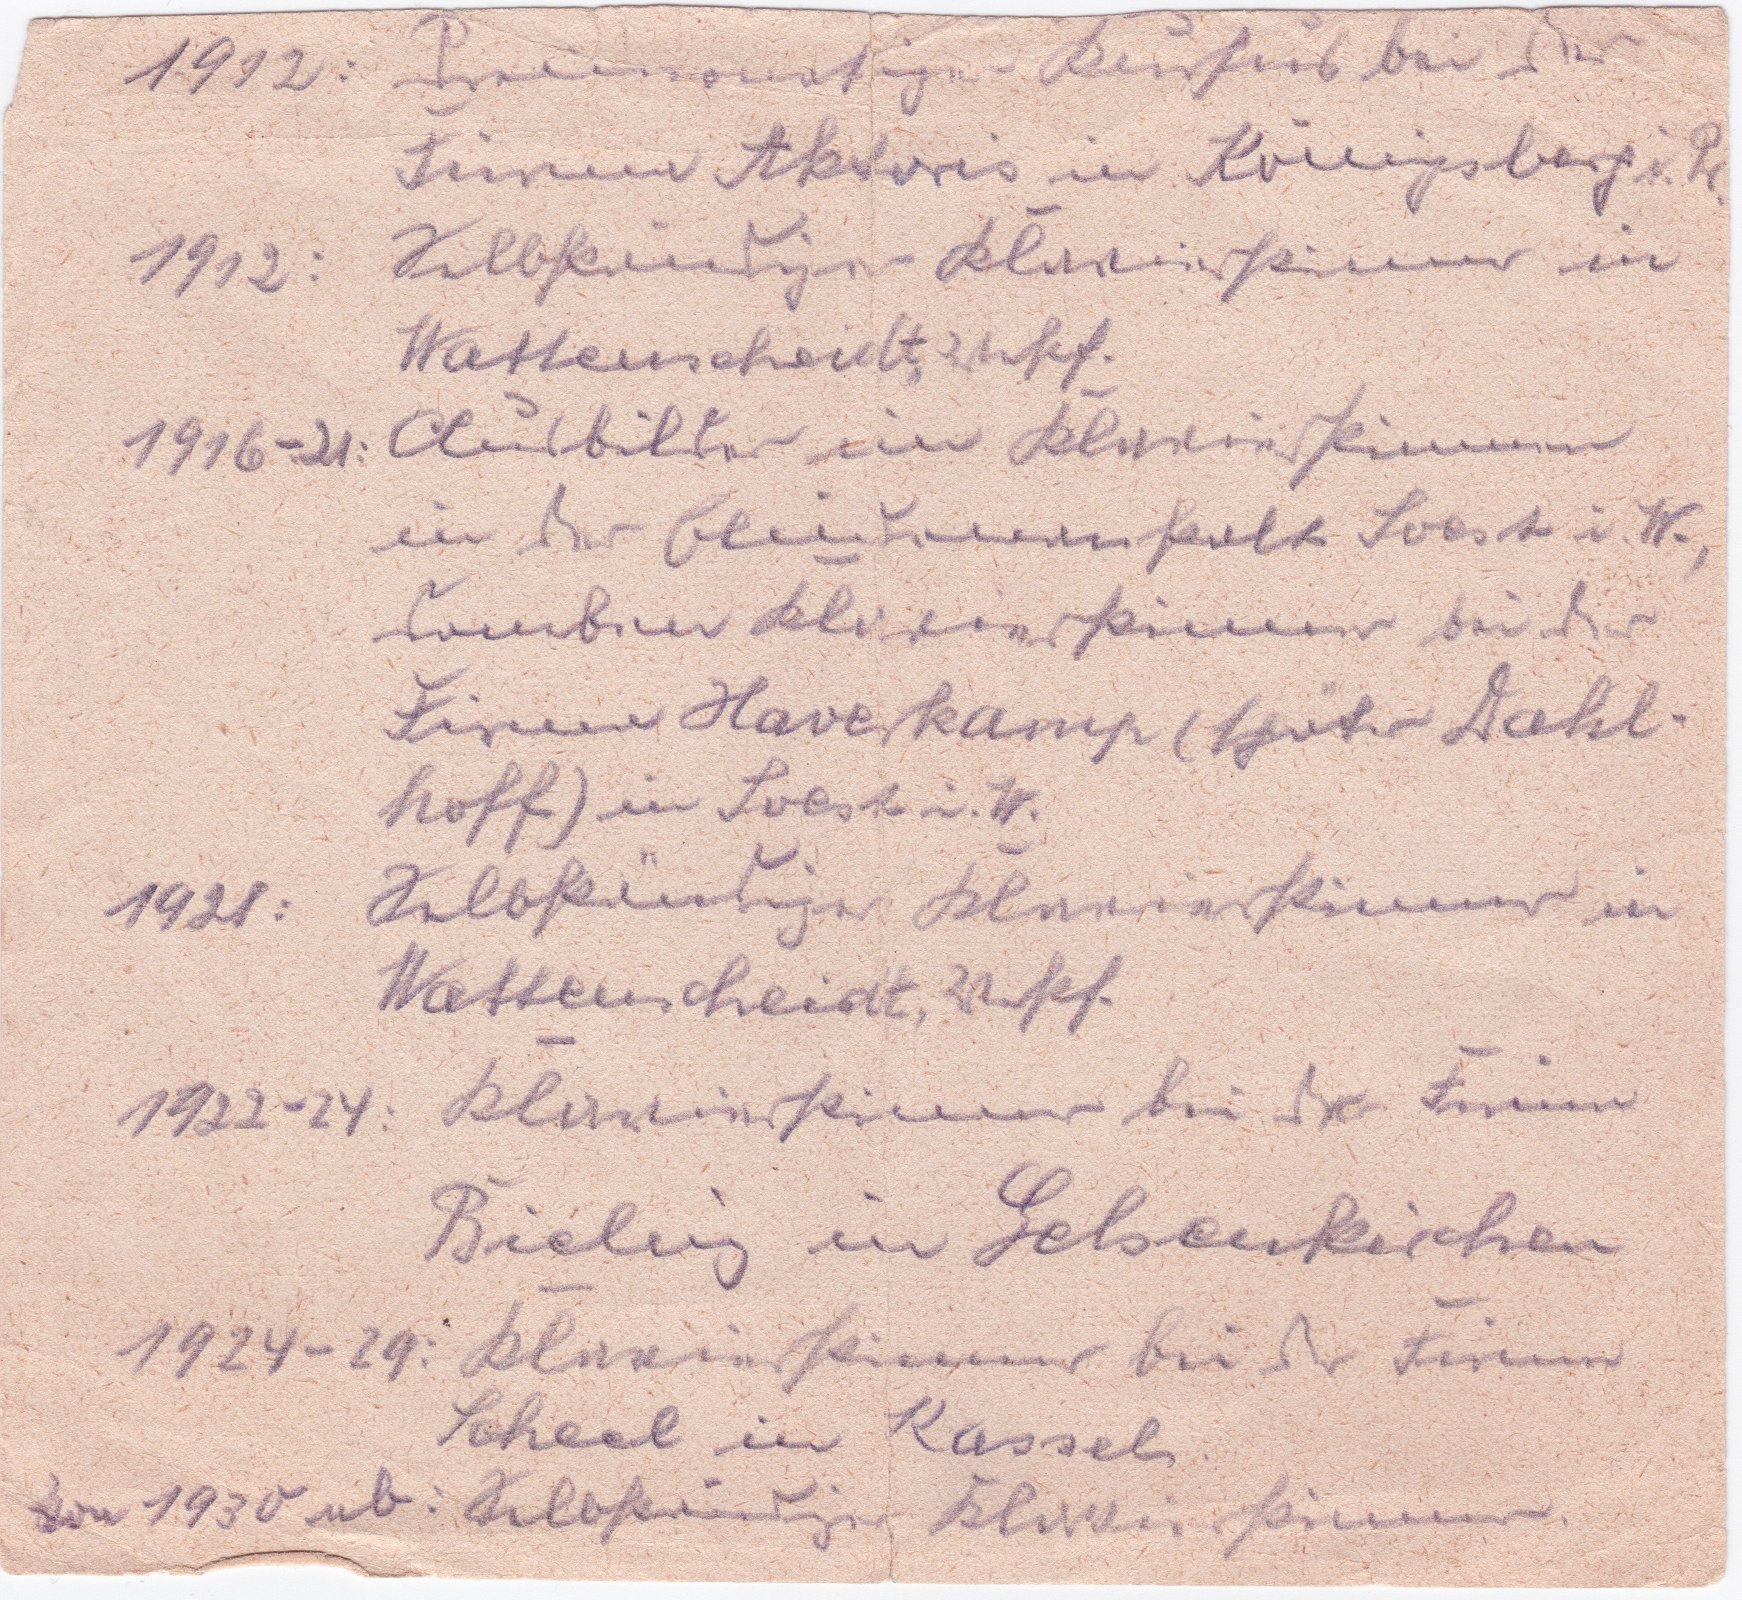 1912: Dreimonatiger Kursus bei der
Firma Aktoris in Königsberg i. Pr.
1912: Selbständiger Klavierstimmer in
Wattenscheidt, Wstf.
1916-21: Ausbilder im Klavierstimmen
in der Blindenanstalt Soest i. W.,
daneben Klavierstimmer bei der
Firma Haverkamp (später Dahl-
hoff) in Soest i. W.
1921: Selbständiger Klavierstimmer in
Wattenscheidt, Wstf.
1922-24: Klavierstimmer bei der Firma
Bieling in Gelsenkirchen
1924-29: Klavierstimmer bei der Firma
Scheel in Kassel.
Von 1930 ab: Selbständiger Klavierstimmer.